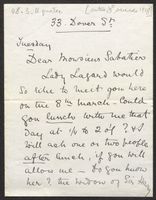 33. Dover St.
Tuesday
Dear Monsieur Sabatier
Lady Layard would
so like to meet you here
on the 8th March - Could
you lunch with me that
Day at 1/4 to 2 of? + I
will ask one or two people
after lunch, if you will
allow me - Do you know
her? the widow of Sir Hy